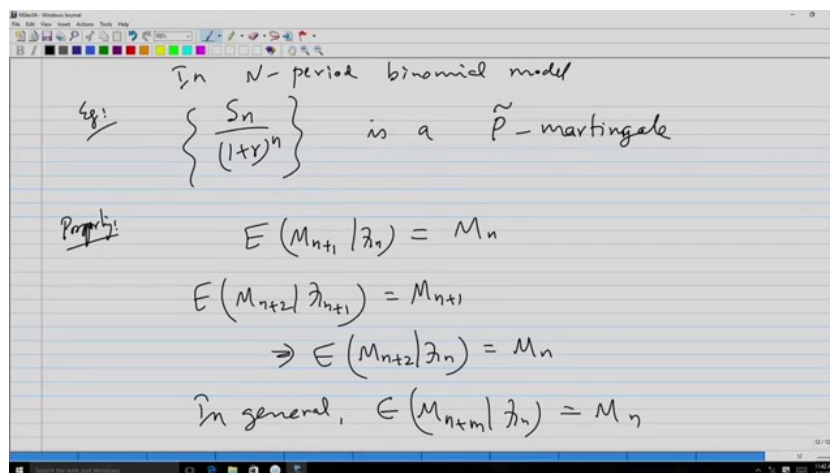 NSec04 - Windows Journal
File Edit View Insert Actions Tools Help
In N-period binomial model
Eg: { Sn / (1+r)^n } is a P̃ - martingale
Property: E (M_{n+1} | ℱ_n) = M_n
E (M_{n+2} | ℱ_{n+1}) = M_{n+1}
⇒ E (M_{n+2} | ℱ_n) = M_n
In general, E (M_{n+m} | ℱ_n) = M_n
12 / 12
12
Search the web and Windows